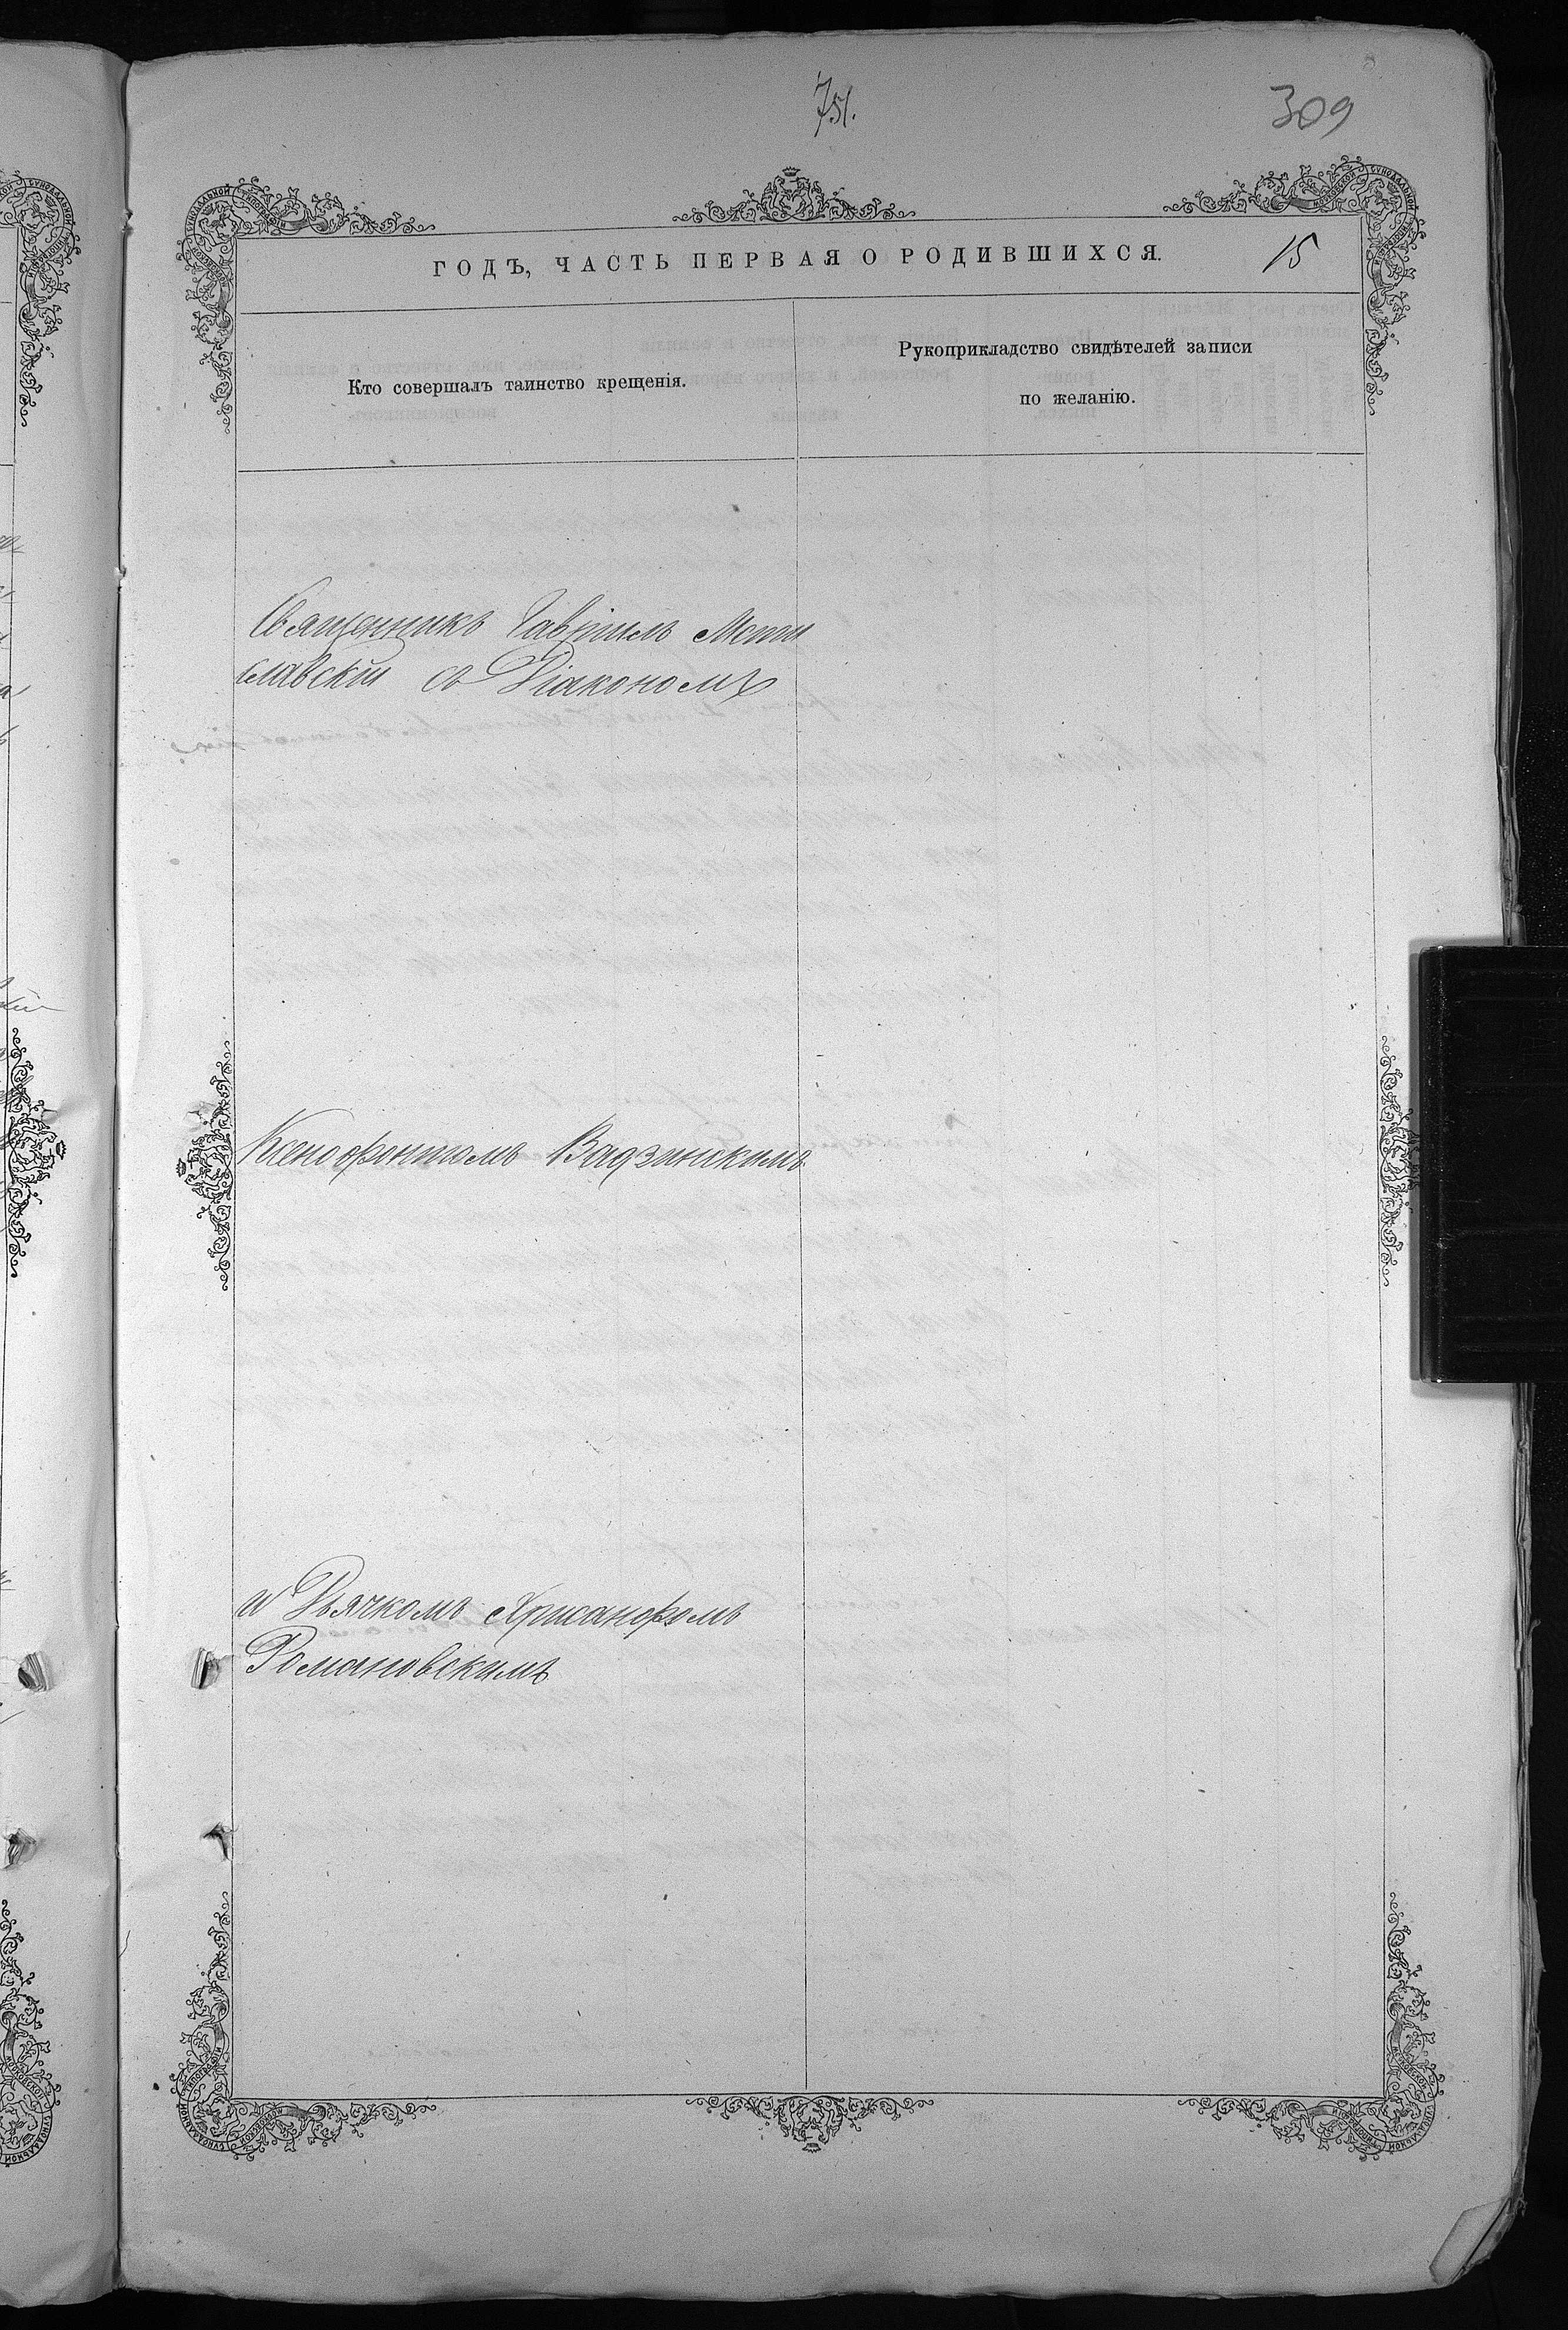 751.
309
ГОДЪ, ЧАСТЬ ПЕРВАЯ О РОДИВШИХСЯ.
15
Кто совершалъ таинство крещенія.
Рукоприкладство свидѣтелей записи
по желанію.
Священникъ Гавріилъ Мсти
славскій съ Діакономъ
Ксенофонтомъ Вадзинскимъ
и Дьячкомъ Хрисанфомъ
Романовскимъ